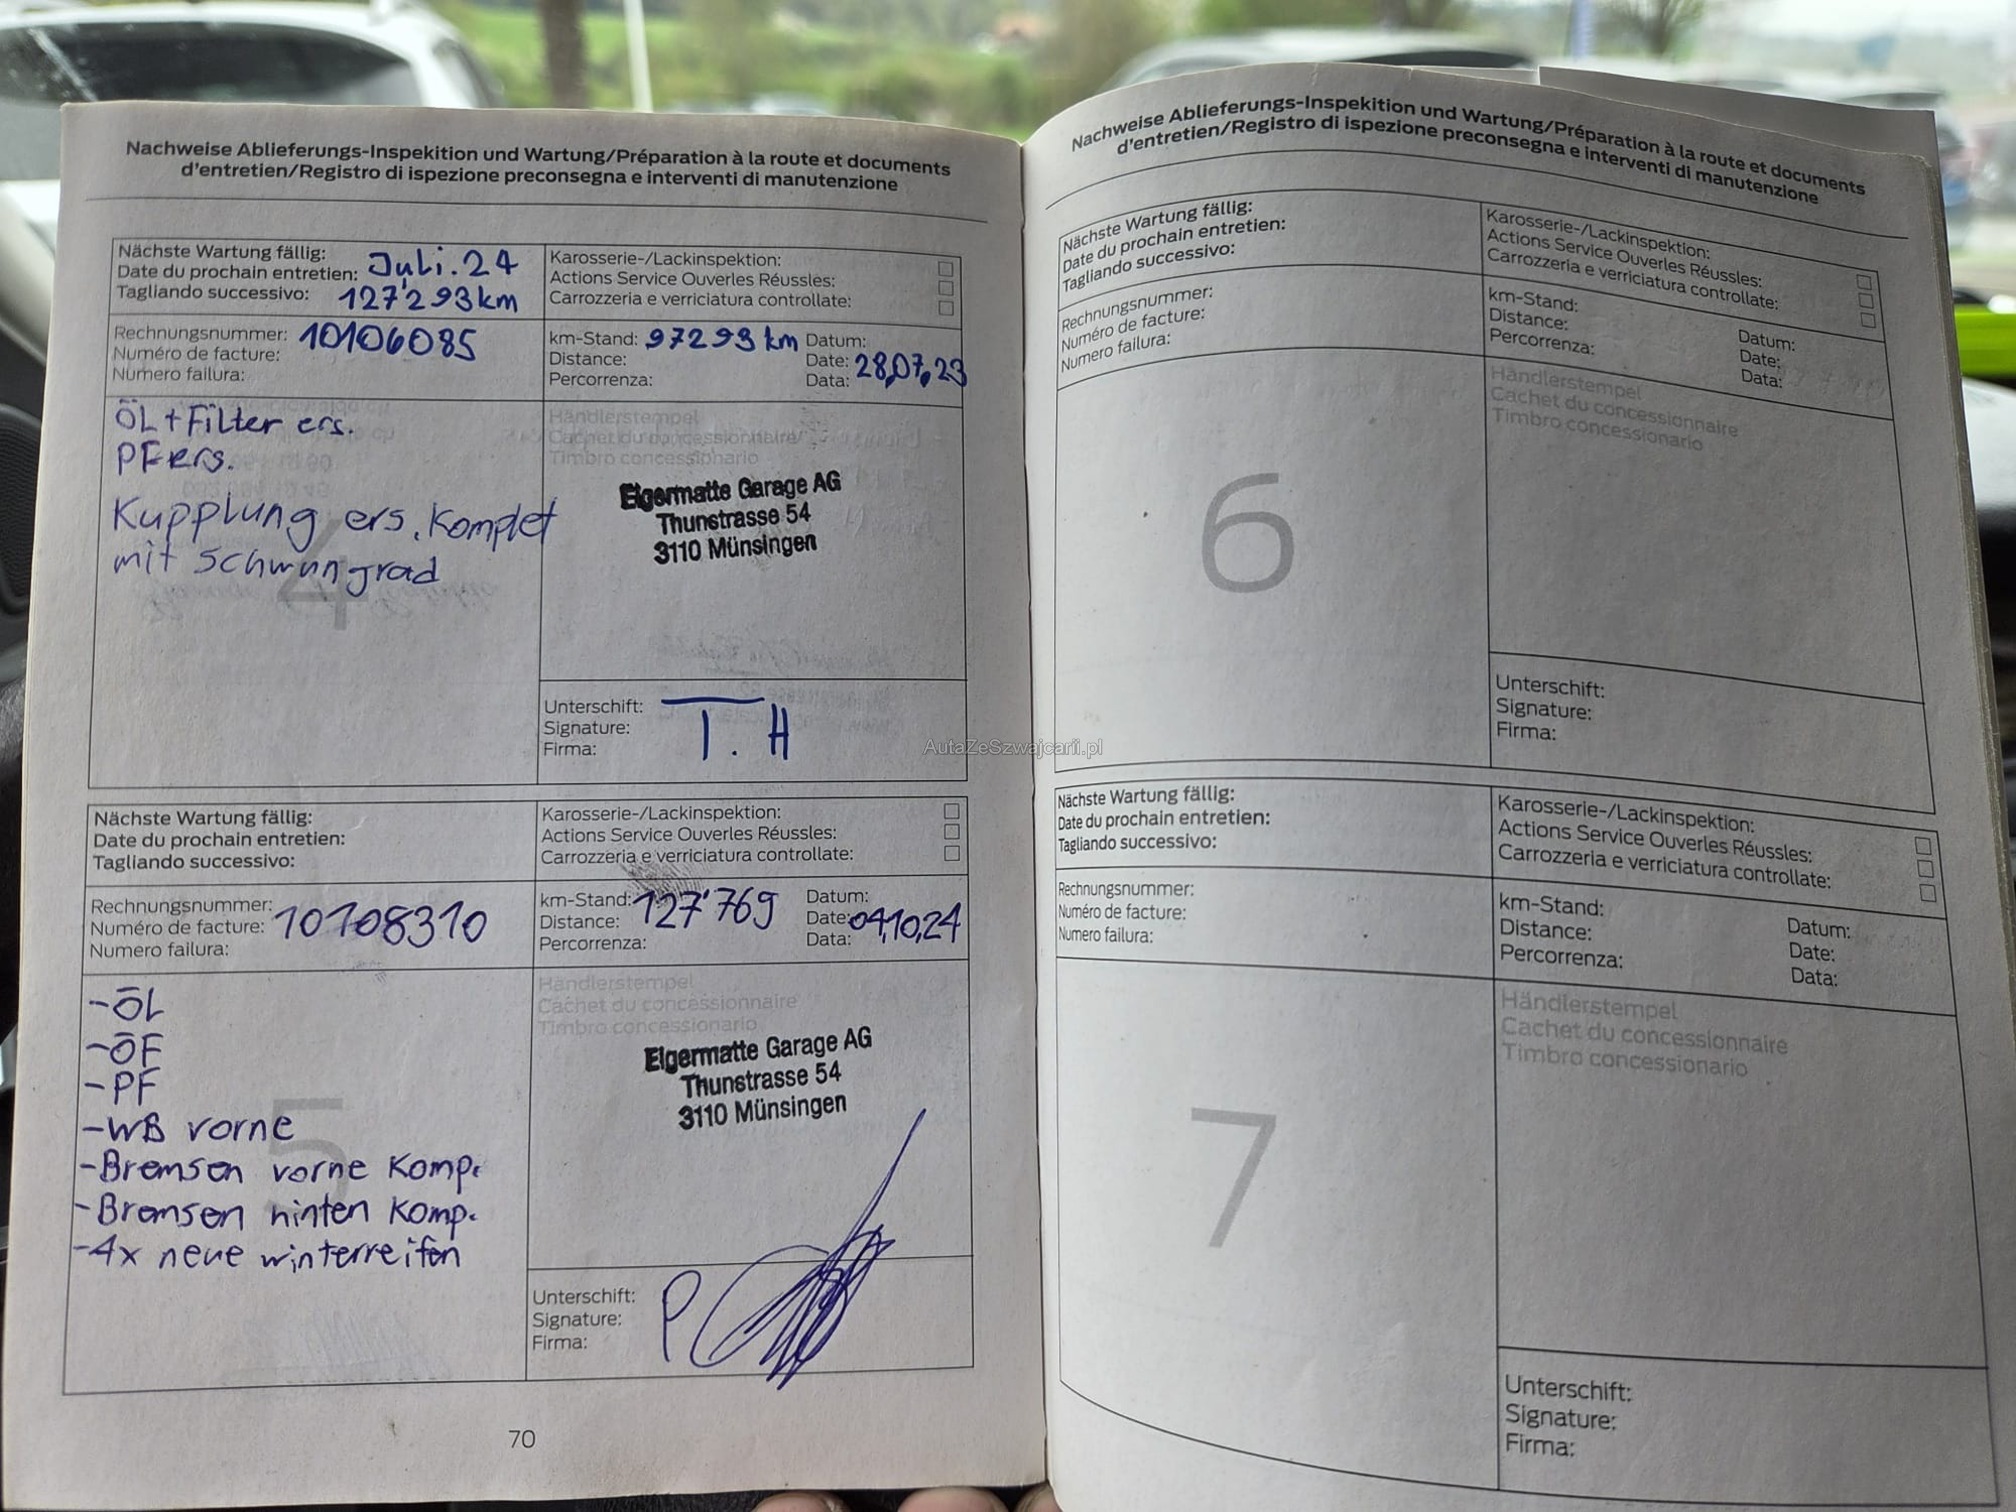 Nachweise Ablieferungs-Inspekition und Wartung/Préparation à la route et documents
d'entretien/Registro di ispezione preconsegna e interventi di manutenzione
Nächste Wartung fällig:
Date du prochain entretien: Juli.24
Tagliando successivo: 127'293km
Karosserie-/Lackinspektion:
Actions Service Ouverles Réussles:
Carrozzeria e verriciatura controllate:
Rechnungsnummer: 10106085
Numéro de facture:
Numero failura:
km-Stand: 97293 km
Distance:
Percorrenza:
Datum:
Date: 28,07,23
Data:
ÖL + Filter ers.
PF ers.
Kupplung ers. Komplet
mit Schwungrad
4
Händlerstempel
Cachet du concessionnaire
Timbro concessionario
Eigermatte Garage AG
Thunstrasse 54
3110 Münsingen
Unterschift:
Signature: T. H
Firma:
Nächste Wartung fällig:
Date du prochain entretien:
Tagliando successivo:
Karosserie-/Lackinspektion:
Actions Service Ouverles Réussles:
Carrozzeria e verriciatura controllate:
Rechnungsnummer:
Numéro de facture: 10108310
Numero failura:
km-Stand: 127'769
Distance:
Percorrenza:
Datum:
Date: 04,10,24
Data:
-ÖL
-ÖF
-PF
-WB vorne
-Bremsen vorne Komp.
-Bremsen hinten Komp.
-4x neue winterreifen
5
Händlerstempel
Cachet du concessionnaire
Timbro concessionario
Eigermatte Garage AG
Thunstrasse 54
3110 Münsingen
Unterschift:
Signature:
Firma:
70
AutaZeSzwajcarii.pl
Nachweise Ablieferungs-Inspekition und Wartung/Préparation à la route et documents
d'entretien/Registro di ispezione preconsegna e interventi di manutenzione
Nächste Wartung fällig:
Date du prochain entretien:
Tagliando successivo:
Karosserie-/Lackinspektion:
Actions Service Ouverles Réussles:
Carrozzeria e verriciatura controllate:
Rechnungsnummer:
Numéro de facture:
Numero failura:
km-Stand:
Distance:
Percorrenza:
Datum:
Date:
Data:
6
Händlerstempel
Cachet du concessionnaire
Timbro concessionario
Unterschift:
Signature:
Firma:
Nächste Wartung fällig:
Date du prochain entretien:
Tagliando successivo:
Karosserie-/Lackinspektion:
Actions Service Ouverles Réussles:
Carrozzeria e verriciatura controllate:
Rechnungsnummer:
Numéro de facture:
Numero failura:
km-Stand:
Distance:
Percorrenza:
Datum:
Date:
Data:
7
Händlerstempel
Cachet du concessionnaire
Timbro concessionario
Unterschift:
Signature:
Firma: